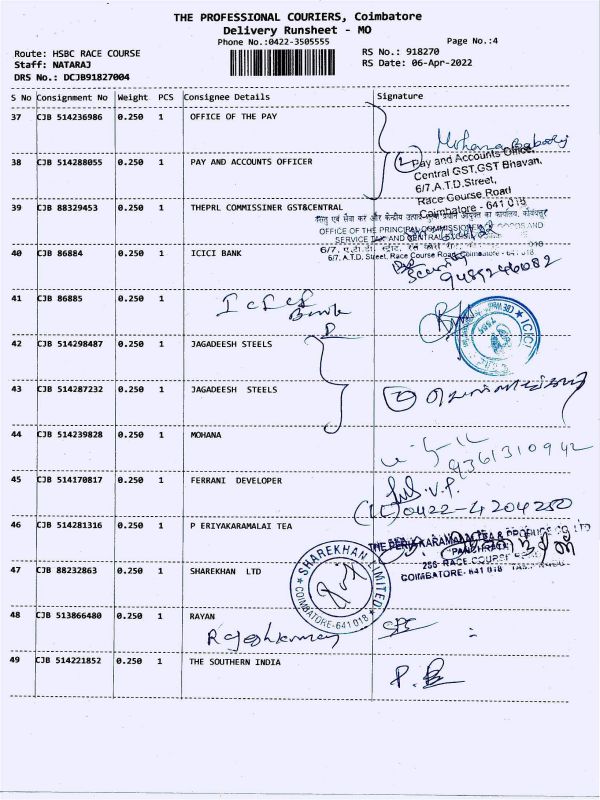 THE PROFESSIONAL COURIERS, Coimbatore
Delivery Runsheet - MO
Phone No.:0422-3505555
Page No.:4
Route: HSBC RACE COURSE
RS No.: 918270
Staff: NATARAJ
RS Date: 06-Apr-2022
DRS No.: DCJB91827004
S No Consignment No Weight PCS Consignee Details Signature
37 CJB 514236986 0.250 1 OFFICE OF THE PAY
38 CJB 514288055 0.250 1 PAY AND ACCOUNTS OFFICER
Pay and Accounts Office,
Central GST,GST Bhavan,
6/7,A.T.D.Street,
Race Course Road
Coimbatore - 641 018
39 CJB 88329453 0.250 1 THEPRL COMMISSINER GST&CENTRAL
OFFICE OF THE PRINCIPAL COMMISSIONER GOODS AND
SERVICE TAX AND CENTRAL
6/7, A.T.D. Street, Race Course Road, Coimbatore - 641 018
40 CJB 86884 0.250 1 ICICI BANK
Security
9489246082
41 CJB 86885 0.250 1
ICICI
Bank
ICICI
42 CJB 514298487 0.250 1 JAGADEESH STEELS
43 CJB 514287232 0.250 1 JAGADEESH STEELS
44 CJB 514239828 0.250 1 MOHANA
9361310942
45 CJB 514170817 0.250 1 FERRANI DEVELOPER
0422-4204250
46 CJB 514281316 0.250 1 P ERIYAKARAMALAI TEA
THE PERIAKARAMALAI TEA & PRODUCE CO LTD
PANCHRATN
286 RACE COURSE
COIMBATORE- 641 018
47 CJB 88232863 0.250 1 SHAREKHAN LTD
SHAREKHAN LIMITED
COIMBATORE-641 018
48 CJB 513866480 0.250 1 RAYAN
Rajeshkumar
49 CJB 514221852 0.250 1 THE SOUTHERN INDIA